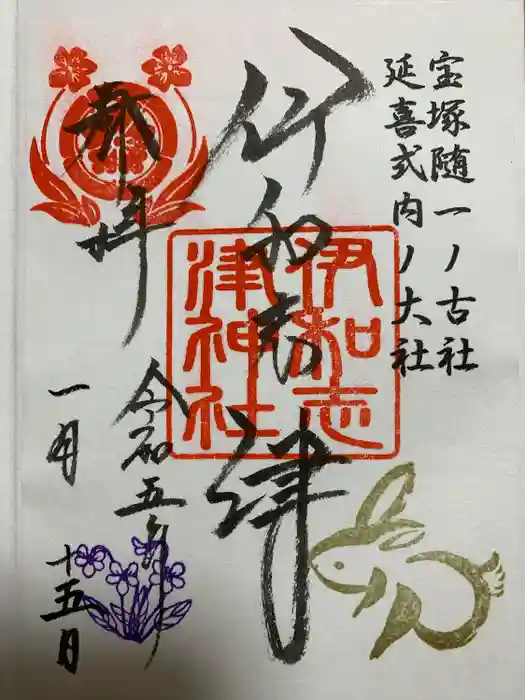 宝塚随一ノ古社
延喜式内ノ大社
伊和志津
伊和志
津神社
奉拝
令和五年
一月
十五日